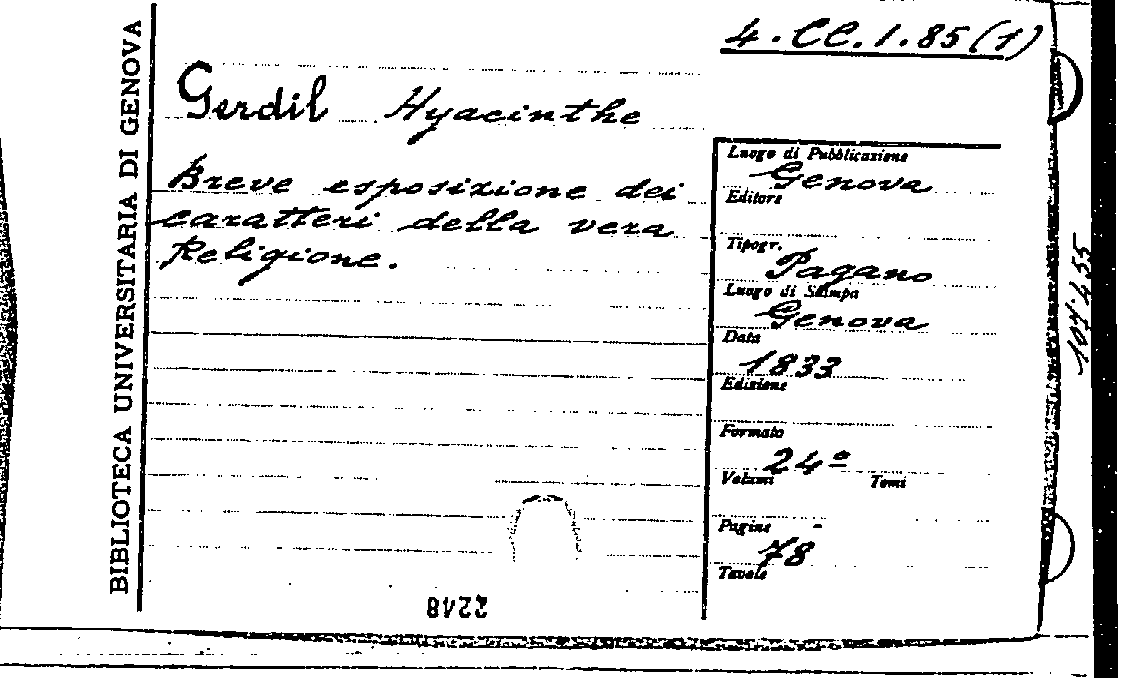 BIBLIOTECA UNIVERSITARIA DI GENOVA
4.CC.1.85(1)
Gerdil Hyacinthe
Breve esposizione dei
caratteri della vera
Religione.
Luogo di Pubblicazione
Genova
Editore
Tipogr.
Pagano
Luogo di Stampa
Genova
Data
1833
Edizione
Formato
24º
Volumi Tomi
Pagine
78
Tavole
2248